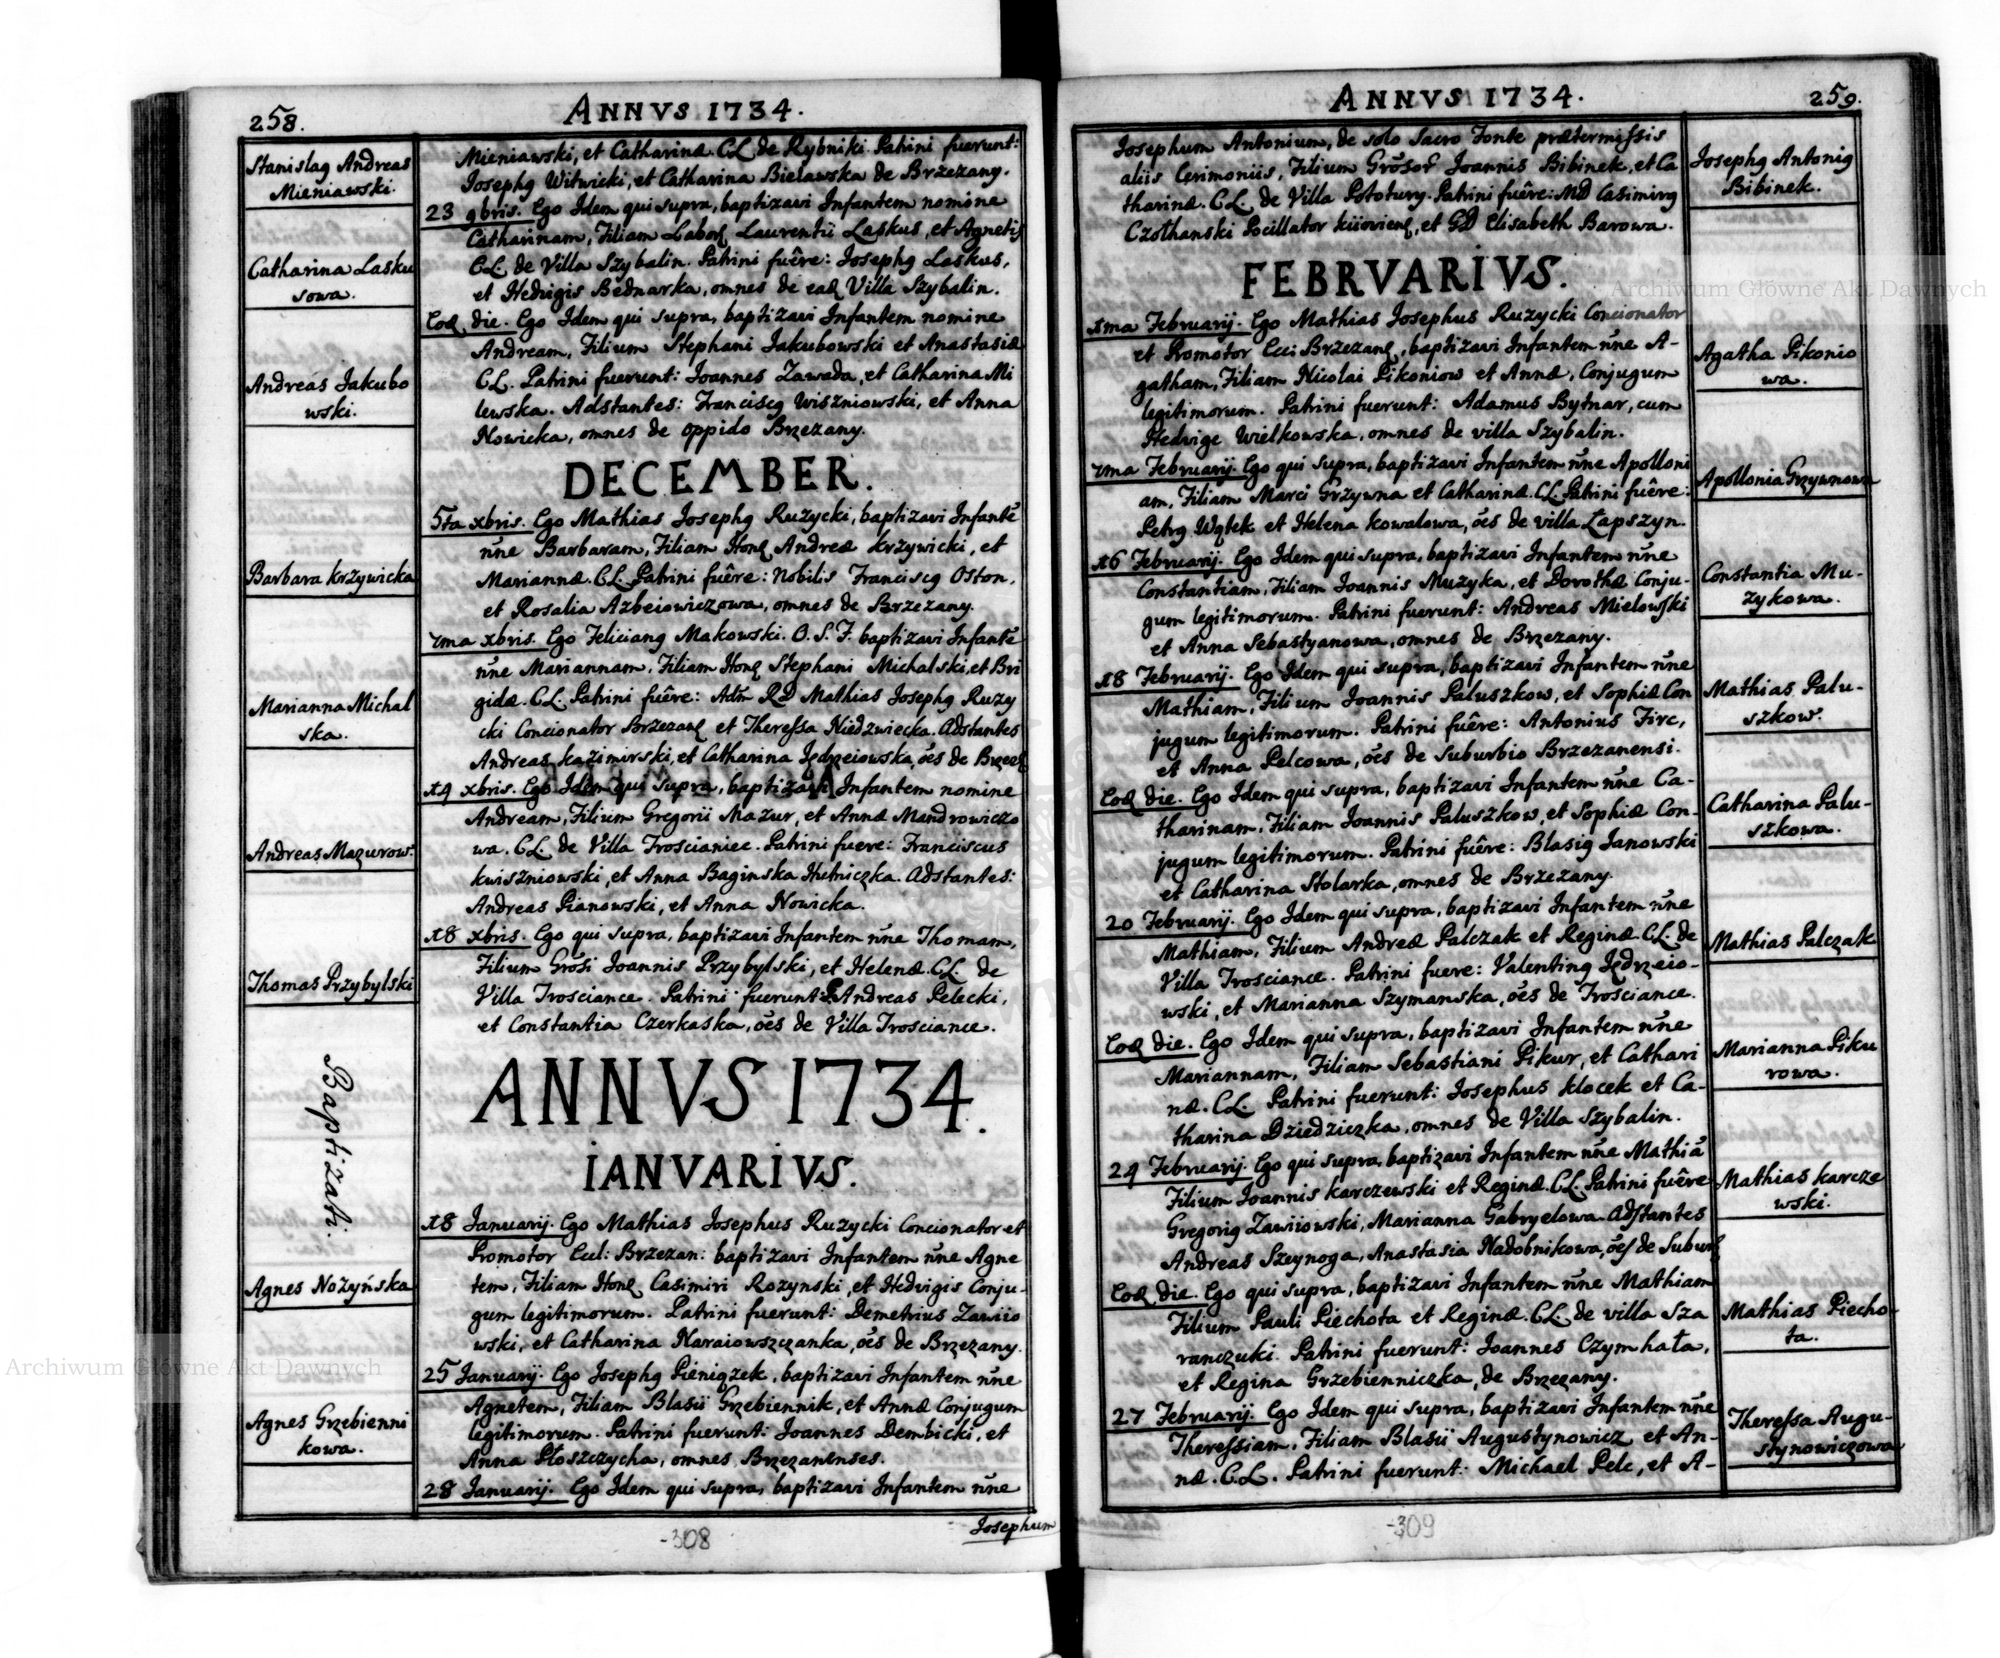 258.
ANNVS 1734.
Stanislaq Andreas
Mieniawski.
Catharina Lasku
sowa.
Andreas Jakubo
wski.
Barbara Krzywicka
Marianna Michal
ska.
Andreas Mazurow.
Thomas Przybylski
Baptizati.
Agnes Nożyńska
Agnes Grzebienni
kowa.
Mieniawski, et Catharinæ. CL. de Rybniki. Patrini fuerunt:
Josephq Witwicki, et Catharina Bielawska de Brzezany.
23 9bris. Ego Idem qui supra, baptizavi Infantem nomine
Catharinam, Filiam Labor Laurentii Laskus, et Agnetis
CL. de Villa Szybalin. Patrini fuêre: Josephq Laskus,
et Hedvigis Bednarka, omnes de ead Villa Szybalin.
Eod, die. Ego Idem qui supra, baptizavi Infantem nomine
Andream, Filium Stephani Jakubowski et Anastasiæ
CL. Patrini fuerunt: Joannes Zawada, et Catharina Mi
lewska. Adstantes: Franciscq Wiszniowski, et Anna
Nowicka, omnes de oppido Brzezany.
DECEMBER.
5ta xbris. Ego Mathias Josephq Ruzycki, baptizavi Infantē
nñe Barbaram, Filiam Hon Andreæ Krzywicki, et
Mariannæ. CL. Patrini fuêre: Nobilis Franciscq Oston,
et Rosalia Azbeiowiczowa, omnes de Brzezany.
7ma xbris. Ego Felicianq Makowski. O. S. F. baptizavi Infantē
nñe Mariannam, Filiam Hon Stephani Michalski, et Bri
gidæ. CL. Patrini fuêre: Adm RD Mathias Josephq Ruzy
cki Concionator Brzezan et Theressa Niedzwiecka. Adstantes
Andreas Kazimirski, et Catharina Jędrzeiowska, oēs de Brzez
14 xbris. Ego Idem qui supra, baptizavi Infantem nomine
Andream, Filium Gregorii Mazur, et Annæ Mandrowiczo
wa. CL. de Villa Trosciance. Patrini fuere: Franciscus
Kwiszniowski, et Anna Baginska Hutniczka. Adstantes:
Andreas Pianowski, et Anna Nowicka.
18 xbris. Ego qui supra, baptizavi Infantem nñe Thomam,
Filium Grosi Joannis Przybylski, et Helenæ. CL. de
Villa Trosciance. Patrini fuerunt: Andreas Pelecki,
et Constantia Czerkaska, oēs de Villa Trosciance.
ANNVS 1734.
IANVARIVS.
18 Januarij. Ego Mathias Josephus Ruzycki Concionator et
Promotor Eccl: Brzezan: baptizavi Infantem nñe Agne
tem, Filiam Hon Casimiri Rozynski, et Hedvigis Conju-
gum legitimorum. Patrini fuerunt: Demetrius Zawiio
wski, et Catharina Naraiowszczanka, oēs de Brzezany.
25 Januarij. Ego Josephq Pieniązek, baptizavi Infantem nñe
Agnetem, Filiam Blasii Grzebiennik, et Annæ Conjugum
legitimorum. Patrini fuerunt: Joannes Dembicki, et
Anna Płoszczycha, omnes, Brzezanenses.
28 Januarij. Ego Idem qui supra, baptizavi Infantem nñe
Josephum
-308
ANNVS 1734.
259.
Josephum Antonium, de solo Sacro Fonte prætermissis
aliis Cerimoniis, Filium Joannis Bibinek, et Ca
tharinæ. CL. de Villa Potutury. Patrini fuêre: MD Casimirq
Czothanski Pocillator Kiiovien, et GD Elisabeth Barowa.
FEBRVARIVS.
1ma Februarij. Ego Mathias Josephus Ruzycki Concionator
et Promotor Brzezan, baptizavi Infantem nñe A-
gatham, Filiam Nicolai Pikoniow et Annæ, Conjugum
legitimorum. Patrini fuerunt: Adamus Bytnar, cum
Hedvige Wielkowska, omnes de villa Szybalin.
7ma Februarij. Ego qui supra, baptizavi Infantem nñe Apolloni
am, Filiam Marci Grzywna et Catharinæ. CL. Patrini fuêre:
Petrq Wątek et Helena Kowalowa, oēs de villa Łapszyn.
16 Februarij. Ego Idem qui supra, baptizavi Infantem nñe
Constantiam, Filiam Joannis Muzyka, et Dorothæ Conju-
gum legitimorum. Patrini fuerunt: Andreas Mielowski
et Anna Sebastyanowa, omnes de Brzezany.
18 Februarij. Ego Idem qui supra, baptizavi Infantem nñe
Mathiam, Filium Joannis Paluszkow, et Sophiæ Con
jugum legitimorum. Patrini fuêre: Antonius Firc,
et Anna Pelcowa, oēs de Suburbio Brzezanensi.
Eod die. Ego Idem qui supra, baptizavi Infantem nñe Ca-
tharinam, Filiam Joannis Paluszkow, et Sophiæ Con-
jugum legitimorum. Patrini fuêre: Blasiq Janowski
et Catharina Stolarka, omnes de Brzezany.
20 Februarij. Ego Idem qui supra, baptizavi Infantem nñe
Mathiam, Filium Andreæ Palczak et Reginæ. CL. de
Villa Trosciance. Patrini fuere: Valentinq Jędrzeio-
wski, et Marianna Szymanska, oēs de Trosciance.
Eod die. Ego Idem qui supra, baptizavi Infantem nñe
Mariannam, Filiam Sebastiani Pikur, et Cathari
næ. CL. Patrini fuerunt: Josephus Klocek et Ca-
tharina Dziedziczka, omnes de Villa Szybalin.
24 Februarij. Ego qui supra, baptizavi Infantem nñe Mathiā
Filium Joannis Karczewski et Reginæ. CL. Patrini fuêre
Gregoriq Zawiiowski, Marianna Gabryelowa. Adstantes
Andreas Szeynoga, Anastasia Nadobnikowa, oēs de Suburb
Eod die. Ego qui supra, baptizavi Infantem nñe Mathiam
Filium Pauli Piechota et Reginæ. CL. de villa Sza
ranczuki. Patrini fuerunt: Joannes Czymhała,
et Regina Grzebienniczka, de Brzezany.
27 Februarij. Ego Idem qui supra, baptizavi Infantem nñe
Theressiam, Filiam Blasii Augustynowicz, et An-
næ. C.L. Patrini fuerunt: Michael Pelc, et A-
Josephq Antoniq
Bibinek.
Agatha Pikonio
wa.
Apollonia Grzywnowa
Constantia Mu-
zykowa.
Mathias Palu-
szkow.
Catharina Palu-
szkowa.
Mathias Palczak
Marianna Piku
rowa.
Mathias Karcze
wski.
Mathias Piecho-
ta.
Theressa Augu-
stynowiczowa
-309
Archiwum Główne Akt Dawnych
Archiwum Główne Akt Dawnych